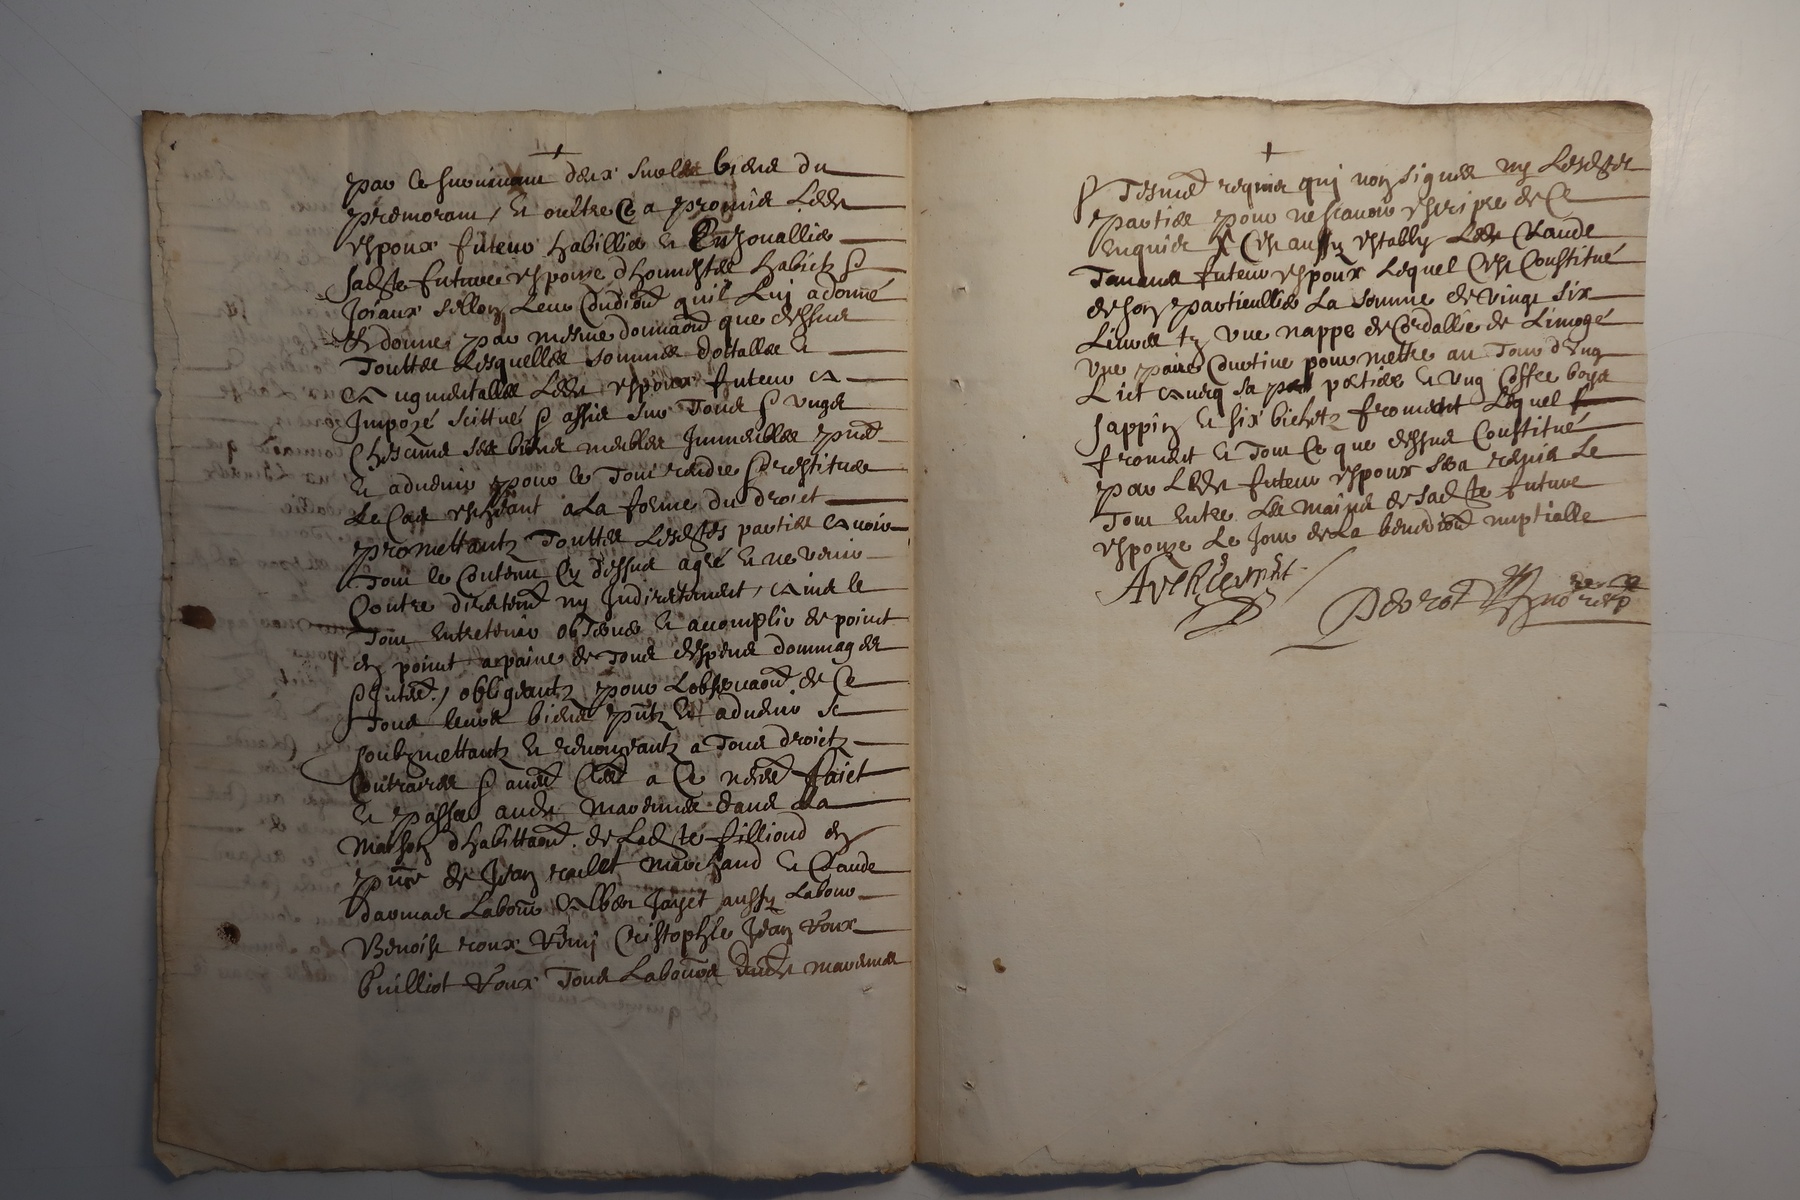 par le survivant d'eux sur les biens du
premorant, Et oultre Ce a promis Ledt
espoux futeur habillier et Enjouallier
sadte future espouse d'honnestes habictz &
Joiaux sellon Leur Condiōn quil Luy a donné
Et donne par mesme donnaōn que dessus
Touttes Lesquelles sommes dottalles et
augmentalles Ledt espoux futeur a
Imposé scittué & assis sur Tous & ungs
Chascuns ses biens meubles Immeubles pñts
et advenir pour le Tout rendre & restituer
Le Cas escheant à La forme du droict
promettantz Touttes Lesdtes parties avoir
Tout le Contenu Cy dessus agré et ne venir
Contre directemt ny Indirectement, ains le
Tout entretenir observer et accomplir de point
en point a paine de Tous despens dommages
& Intretz, obligeantz pour Lobservaōn de Ce
Tous leurs biens pñtz et advenir se
soubzmettantz et renonceantz a Tous droictz
Contraires & avec Clses a Ce neccres faict
et passé audt dans La
Maison d'habittaōn de Ladte filliond en
pñce de Jean marchand et Claude
Labour Jayet aussy Labour
Benoist roux Cristophle Jean roux
roux Tous Labours dudt
+
& Tesmes requis quj non signés ny Lesdtes
parties pour ne scavoir escripre de Ce
enquis & Cest aussy establj Ledt Claude
futeur espoux Lequel Cest Constitué
de son particullier La somme de vingt six
Livres tz une nappe de Cordallie de Limogé
une paire Courtine pour mettre au Tour d'ung
Lict avecq sa et ung Coffre boys
sappin et six bichetz froment Lequel
froment et Tout Ce que dessus Constitué
par Ledt futeur espoux sera remis Le
Tout entre Les mains de sadte future
espouze Le Jour de La benediōn nuptialle
Devrot